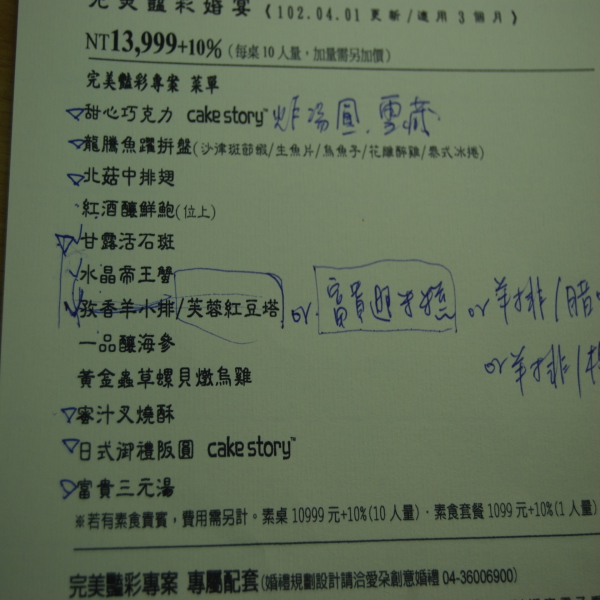 完美豔彩婚宴 《102.04.01更新/適用3個月》
NT13,999+10% (每桌10人量,加量需另加價)
完美豔彩專案 菜單
甜心巧克力 cake story™ 炸湯圓、雪花
龍騰魚躍拼盤(沙津斑節蝦/生魚片/烏魚子/花雕醉雞/泰式冰捲)
北菇中排翅
紅酒釀鮮鮑(位上)
甘露活石斑
水晶帝王蟹
孜香羊小排/芙蓉紅豆塔 or 富貴 or 羊排/
一品釀海參 or 羊排/
黃金蟲草螺貝燉烏雞
蜜汁叉燒酥
日式御禮飯圓 cake story™
富貴三元湯
※若有素食貴賓,費用需另計。素桌10999元+10%(10人量)‧素食套餐1099元+10%(1人量)
完美豔彩專案 專屬配套(婚禮規劃設計請洽愛朵創意婚禮 04-36006900)